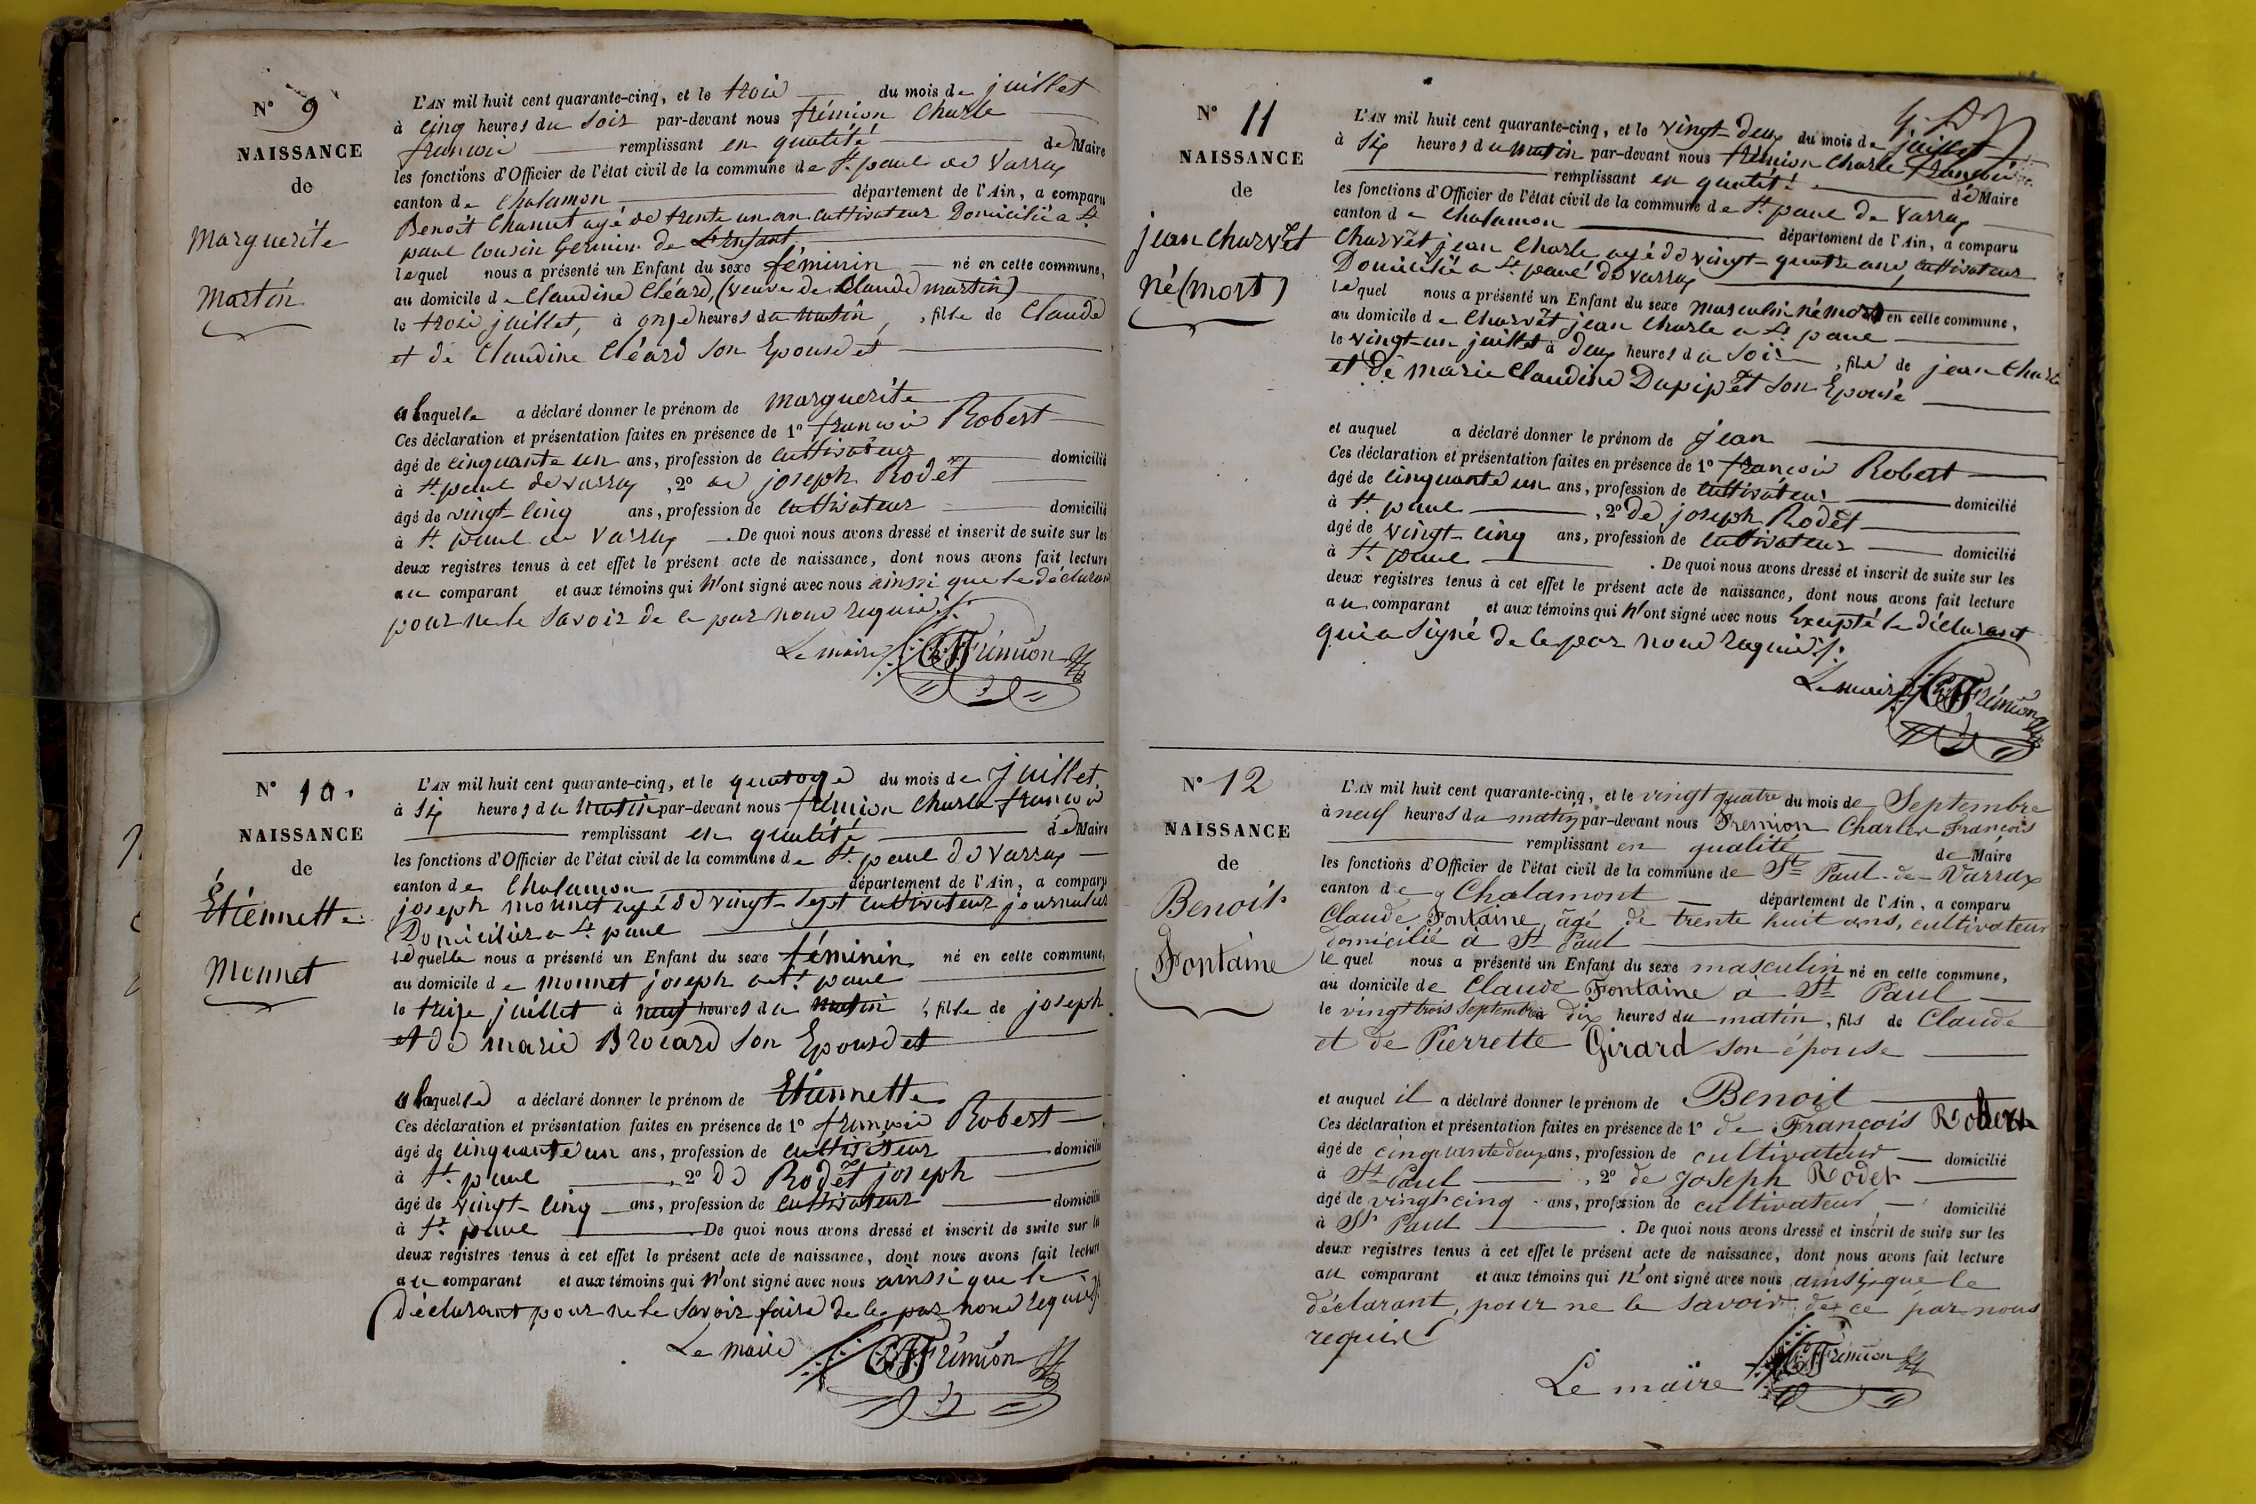 N° 9
NAISSANCE
de
Marguerite
Martin
L'AN mil huit cent quarante-cinq, et le troie du mois de juillet
à cinq heures du soir par-devant nous frémion Charle
françoie remplissant en qualité de Maire
les fonctions d'Officier de l'état civil de la commune de St. paul de Varray
canton de Chalamon département de l'Ain, a comparu
Benoit Chanut agé de trente un an cultivateur Domicilié a St.
paul cousin Germin de L'Enfant
lequel nous a présenté un Enfant du sexe féminin né en cette commune,
au domicile de Claudine Cléard, (veuve de Claude martin)
le troie juillet, à onze heures du matin, fille de Claude
et de Claudine Cléard son Epouse et
a laquelle a déclaré donner le prénom de marguerite
Ces déclaration et présentation faites en présence de 1° françoie Robert
âgé de cinquante un ans, profession de cultivateur domicilié
à St. paul de varray , 2° de joseph Rodet
âgé de vingt-cinq ans, profession de cultivateur domicilié
à St. paul de Varray . De quoi nous avons dressé et inscrit de suite sur les
deux registres tenus à cet effet le présent acte de naissance, dont nous avons fait lecture
au comparant et aux témoins qui n'ont signé avec nous ainssi que le déclarant
pour ne le savoir de ce par nous requis
Le maire CF Frémion
N° 10.
NAISSANCE
de
Étiennette
Monnet
L'AN mil huit cent quarante-cinq, et le quatoze du mois de juillet
à six heures du matin par-devant nous frémion Charle françoie
remplissant en qualité de Maire
les fonctions d'Officier de l'état civil de la commune de St. paul de Varray
canton de Chalamon département de l'Ain, a comparu
joseph monnet agé de vingt-sept cultivateur journalier
Domicilier a St. paul
lequelle nous a présenté un Enfant du sexe féminin né en cette commune,
au domicile de monnet joseph a St. paul
le treize juillet à neuf heures du matin, fille de joseph
et de marie Brocard son Epouse et
a laquelle a déclaré donner le prénom de Etiennette
Ces déclaration et présentation faites en présence de 1° françoie Robert
âgé de cinquante un ans, profession de cultivateur domicilié
à St. paul , 2° de Rodet joseph
âgé de vingt-cinq ans, profession de cultivateur domicilié
à St. paul De quoi nous avons dressé et inscrit de suite sur les
deux registres tenus à cet effet le présent acte de naissance, dont nous avons fait lecture
au comparant et aux témoins qui n'ont signé avec nous ainssi que le
déclarant pour ne le savoir faire de ce par nous requis
Le maire CF Frémion
N° 11
NAISSANCE
de
jean charvet
né (mort)
L'AN mil huit cent quarante-cinq, et le vingt-deux du mois de juillet
à six heures du matin par-devant nous frémion Charle françoie
remplissant en qualité de Maire
les fonctions d'Officier de l'état civil de la commune de St. paul de Varray
canton de Chalamon département de l'Ain, a comparu
Charvet jean Charle agé de vingt-quatre ans, cultivateur
Domicilié a St. paul de varray
lequel nous a présenté un Enfant du sexe masculin né mort en cette commune,
au domicile de Charvet jean Charle a St. paul
le vingt-un juillet à deux heures du soir, fils de jean Charle
et de marie Claudine Dupipet son Epouse
et auquel a déclaré donner le prénom de jean
Ces déclaration et présentation faites en présence de 1° françoie Robert
âgé de cinquante un ans, profession de cultivateur domicilié
à St. paul , 2° de joseph Rodet
âgé de vingt-cinq ans, profession de cultivateur domicilié
à St. paul . De quoi nous avons dressé et inscrit de suite sur les
deux registres tenus à cet effet le présent acte de naissance, dont nous avons fait lecture
au comparant et aux témoins qui n'ont signé avec nous Excepté le déclarant
qui a signé de ce par nous requis
Le maire CF Frémion
N° 12
NAISSANCE
de
Benoit
Fontaine
L'AN mil huit cent quarante-cinq, et le vingt quatre du mois de Septembre
à neuf heures du matin par-devant nous Fremion Charles François
remplissant en qualité de Maire
les fonctions d'Officier de l'état civil de la commune de St Paul-de-Varrax
canton de Chalamont département de l'Ain, a comparu
Claude Fontaine, âgé de trente huit ans, cultivateur
domicilié à St Paul
lequel nous a présenté un Enfant du sexe masculin né en cette commune,
au domicile de Claude Fontaine à St Paul
le vingt trois Septembre à dix heures du matin, fils de Claude
et de Pierrette Girard son épouse
et auquel il a déclaré donner le prénom de Benoit
Ces déclaration et présentation faites en présence de 1° de François Robert
âgé de cinquante deux ans, profession de cultivateur domicilié
à St Paul , 2° de Joseph Rodet
âgé de vingt cinq ans, profession de cultivateur domicilié
à St Paul . De quoi nous avons dressé et inscrit de suite sur les
deux registres tenus à cet effet le présent acte de naissance, dont nous avons fait lecture
au comparant et aux témoins qui n'ont signé avec nous ainsi que le
déclarant, pour ne le savoir de ce par nous
requis
Le maire CF Frémion